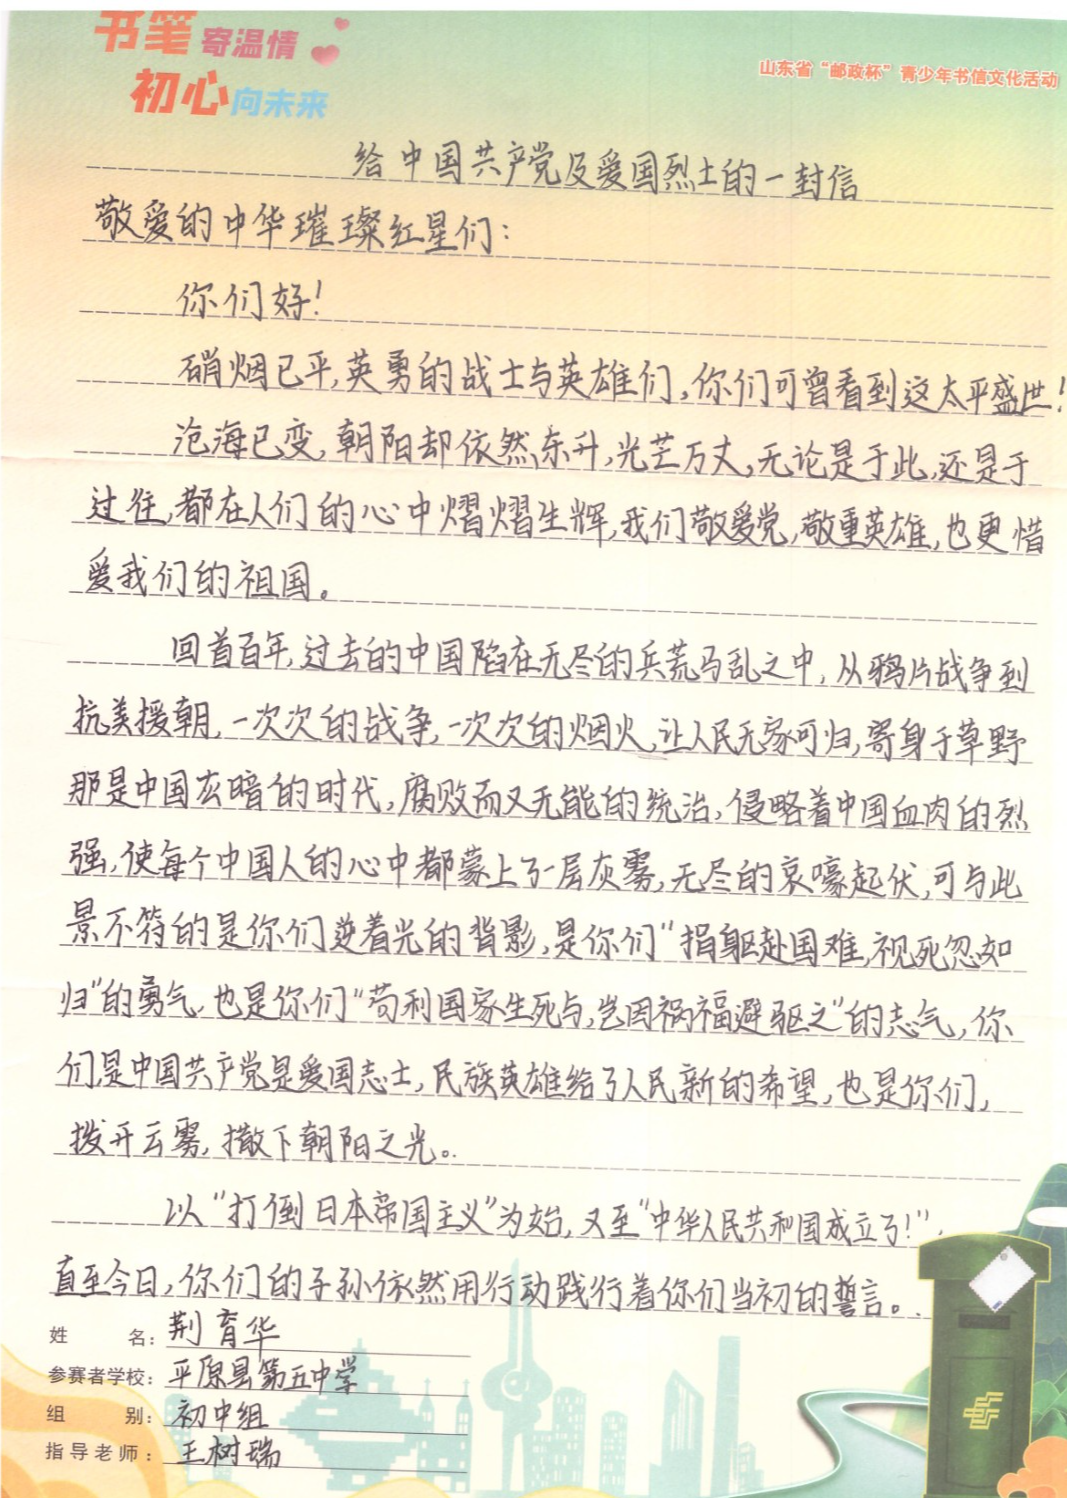 书笔寄温情
初心向未来
山东省“邮政杯”青少年书信文化活动
给中国共产党及爱国烈士的一封信
敬爱的中华璀璨红星们：
你们好！
硝烟已平,英勇的战士与英雄们,你们可曾看到这太平盛世！
沧海已变,朝阳却依然东升,光芒万丈,无论是于此,还是于
过往,都在人们的心中熠熠生辉,我们敬爱党,敬重英雄,也更惜
爱我们的祖国。
回首百年,过去的中国陷在无尽的兵荒马乱之中,从鸦片战争到
抗美援朝,一次次的战争,一次次的烟火,让人民无家可归,寄身于草野
那是中国灰暗的时代,腐败而又无能的统治,侵略着中国血肉的烈
强,使每个中国人的心中都蒙上了一层灰雾,无尽的哀嚎起伏,可与此
景不符的是你们逆着光的背影,是你们“捐躯赴国难,视死忽如
归”的勇气,也是你们“苟利国家生死与,岂因祸福避驱之”的志气,你
们是中国共产党是爱国志士,民族英雄给了人民新的希望,也是你们,
拨开云雾,撒下朝阳之光。
以“打倒日本帝国主义”为始,又至“中华人民共和国成立了!”,
直至今日,你们的子孙依然用行动践行着你们当初的誓言。
姓名：荆育华
参赛者学校：平原县第五中学
组别：初中组
指导老师：王树瑞